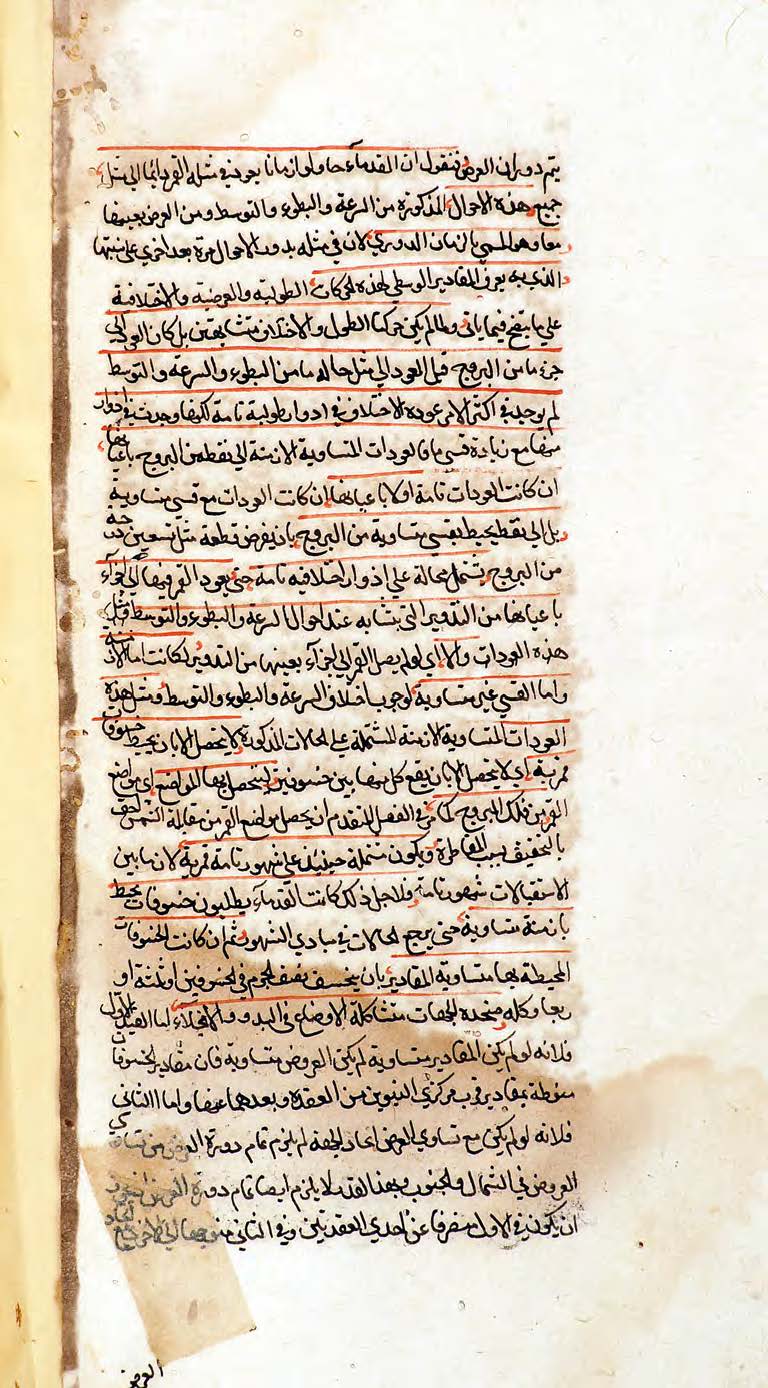 يتم دوران العرض فنقول ان القدمآء حاولوا زمانا يعود في مثله القمر دائما الى مثل
جميع هذه الاحوال المذكورة من السرعة والبطوء والتوسط ومن العرض بعينها
معا وهو المسمى بالزمان الدوري لان في مثله يدور الاحوال مرة بعد اخري على نسبتها
الذي به يعرف المقادير الوسطي لهذه الحركات الطولية والعرضية والاختلافية
علي ما يتضح فيما ياتى ولما لم يكن حركتا الطول والاختلاف متشابهتين بل كان العود الى
جزء ما من البروج قبل العود الى مثل حاله ما من البطوء والسرعة والتوسط
لم يوجد في اكثر الامر عودة الاختلاف في ادوار طولية تامة لكنها وجدت في ادوار
منها مع زيادة قسي ما فالعودات المتساوية الازمنة الى نقطه من البروج باعيانها
ان كانت العودات تامة او لا باعيانها ان كانت العودات مع قسي متساوية
بل الى نقط يحيط بقسي متساوية من البروج بان يفرض قطعة مثل تسعين درجة
من البروج يشتمل محالة علي ادوار اختلافيه تامة حتى يعود القمر فيها الى اجزآء
باعيانها من التدوير التى يتشابه عندها احوال السرعة والبطوء والتوسط في مثل
هذه العودات والا اي لو لم يصل القمر الى اجزآء بعينها من التدوير لكانت اما الازمنة
واما القسي غير متساوية لوجوب اختلاف السرعة والبطوء والتوسط ومثل هذه
العودات المتساوية الازمنة المشتملة على الحالات المذكورة لا يتحصل الا بان يحيط خسوفات
قمرية اي لا يتحصل الا بان يقع كل منها بين خسوفين يتحصل بها المواضع اي مواضع
القمر من فلك البروج كما مر في الفصل المتقدم ان يحصل مواضع القمر من مقابلة الشمس احق
بالتحقيق بسبب المقاطرة ويكون مشتملة حينئذ على شهور تامة قمرية لان ما بين
الاستقبالات شهور تامة ولاجل ذلك كانت القدمآء يطلبون خسوفات يحيط
بازمنة متساوية حتى يرجع الحالات في مبادي الشهور ثم ان كانت الخسوفات
المحيطة بها متساوية المقادير بان ينخسف نصف الجرم في الخسوفين او ثلثه او
ربعا وكله متحده الجهات متشاكلة الاوضاع في البدو والانجلاء اما القيد الاول
فلانه لو لم يكن المقادير متساوية لم يكن العروض متساوية فان مقادير الخسوفات
منوطة بمقادير قرب مركزي النيرين من العقدة وبعدهما عنها واما الثانى
فلانه لو لم يكن مع تساوي العرض اتحاد الجهة لم يلزم تمام دورة العرض من تساوي
العروض في الشمال والجنوب وبهذا القدر لا يلزم ايضا تمام دورة العرض
ان يكون في الاول منصرفا عن احدي العقدتين وفي الثانى متوجها الى الاخرى
العرض